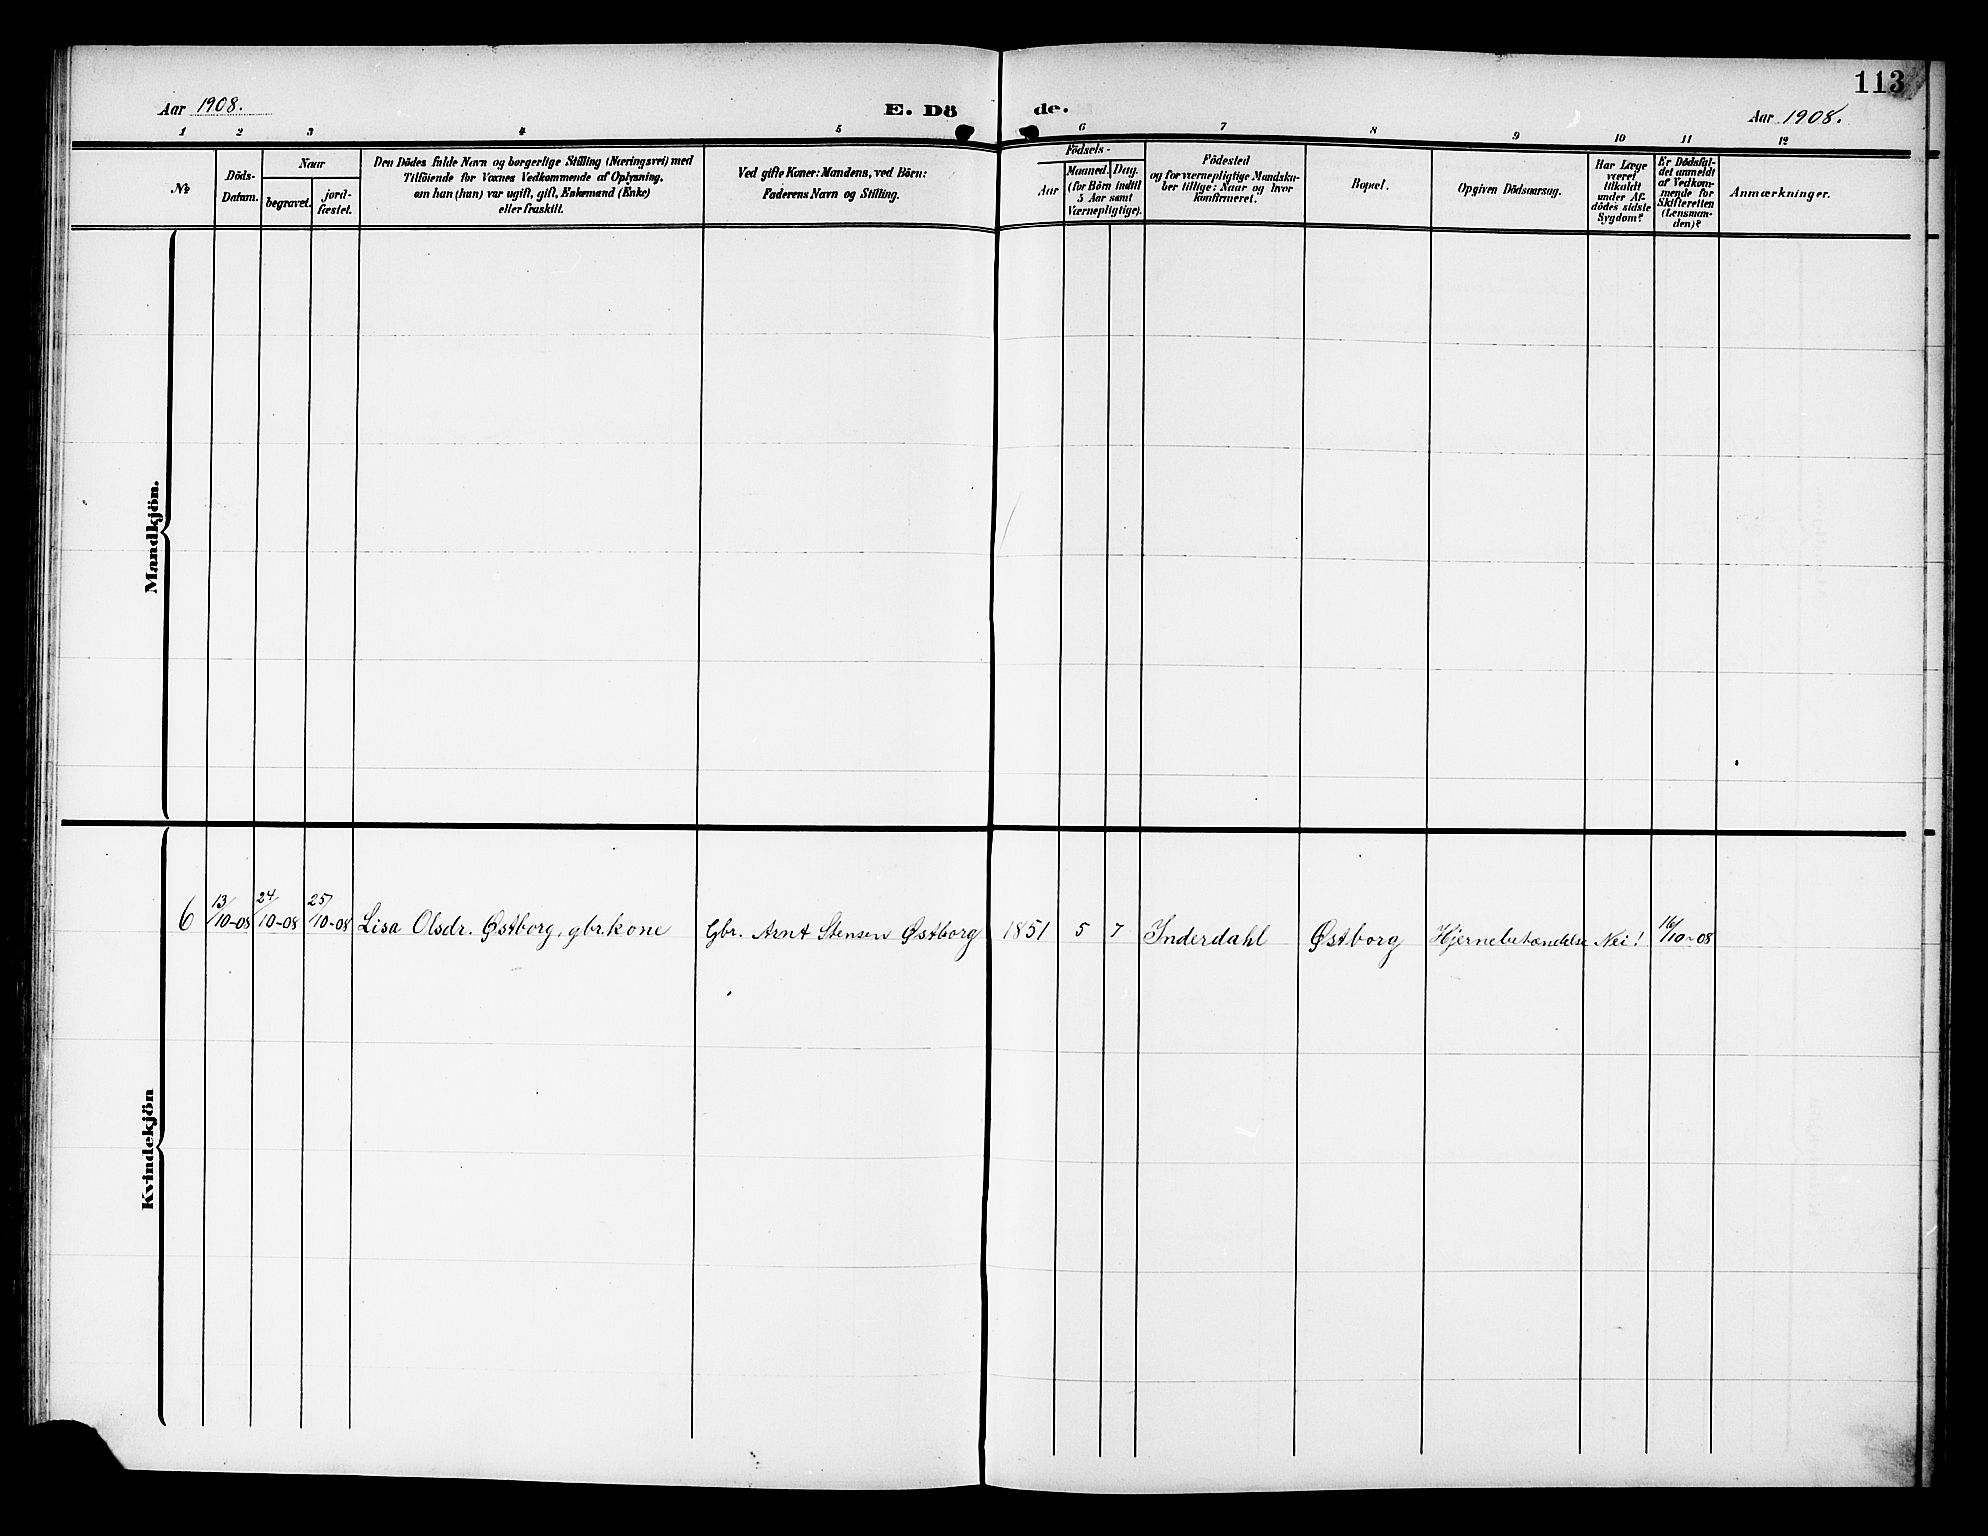 113
Aar 1908.
E. Dö
de.
Aar 1908.
1 2 3 4 5 6 7 8 9 10 11 12
№
Döds-
Datum.
Naar
begravet.
jord-
fæstet.
Den Dödes fulde Navn og borgerlige Stilling (Næringsvei) med
Tilföiende for Voxnes Vedkommende af Oplysning,
om han (hun) var ugift, gift, Enkemand (Enke)
eller fraskilt.
Ved gifte Koner: Mandens, ved Börn:
Faderens Navn og Stilling.
Födsels-
Aar
Maaned.
Dag.
(for Börn indtil
5 Aar samt
Værnepligtige).
Födested
og for værnepligtige Mandsku-
ber tillige: Naar og hvor
konfirmeret.
Bopæl.
Opgiven Dödsaarsag.
Har Læge
været
tilkaldt
under Af-
dödes sidste
Sygdom?
Er Dödsfal-
det anmeldt
af Vedkom-
mende for
Skifteretten
(Lensman-
den)?
Anmærkninger.
Mandkjön.
Kvindekjön
6 13/10-08 24/10-08 25/10-08 Lisa Olsdr. Østborg, gbr.kone Gbr. Arnt Stensen Østborg 1851 5 7 Inderdahl Østborg Hjernebetændelse Nei! 16/10-08